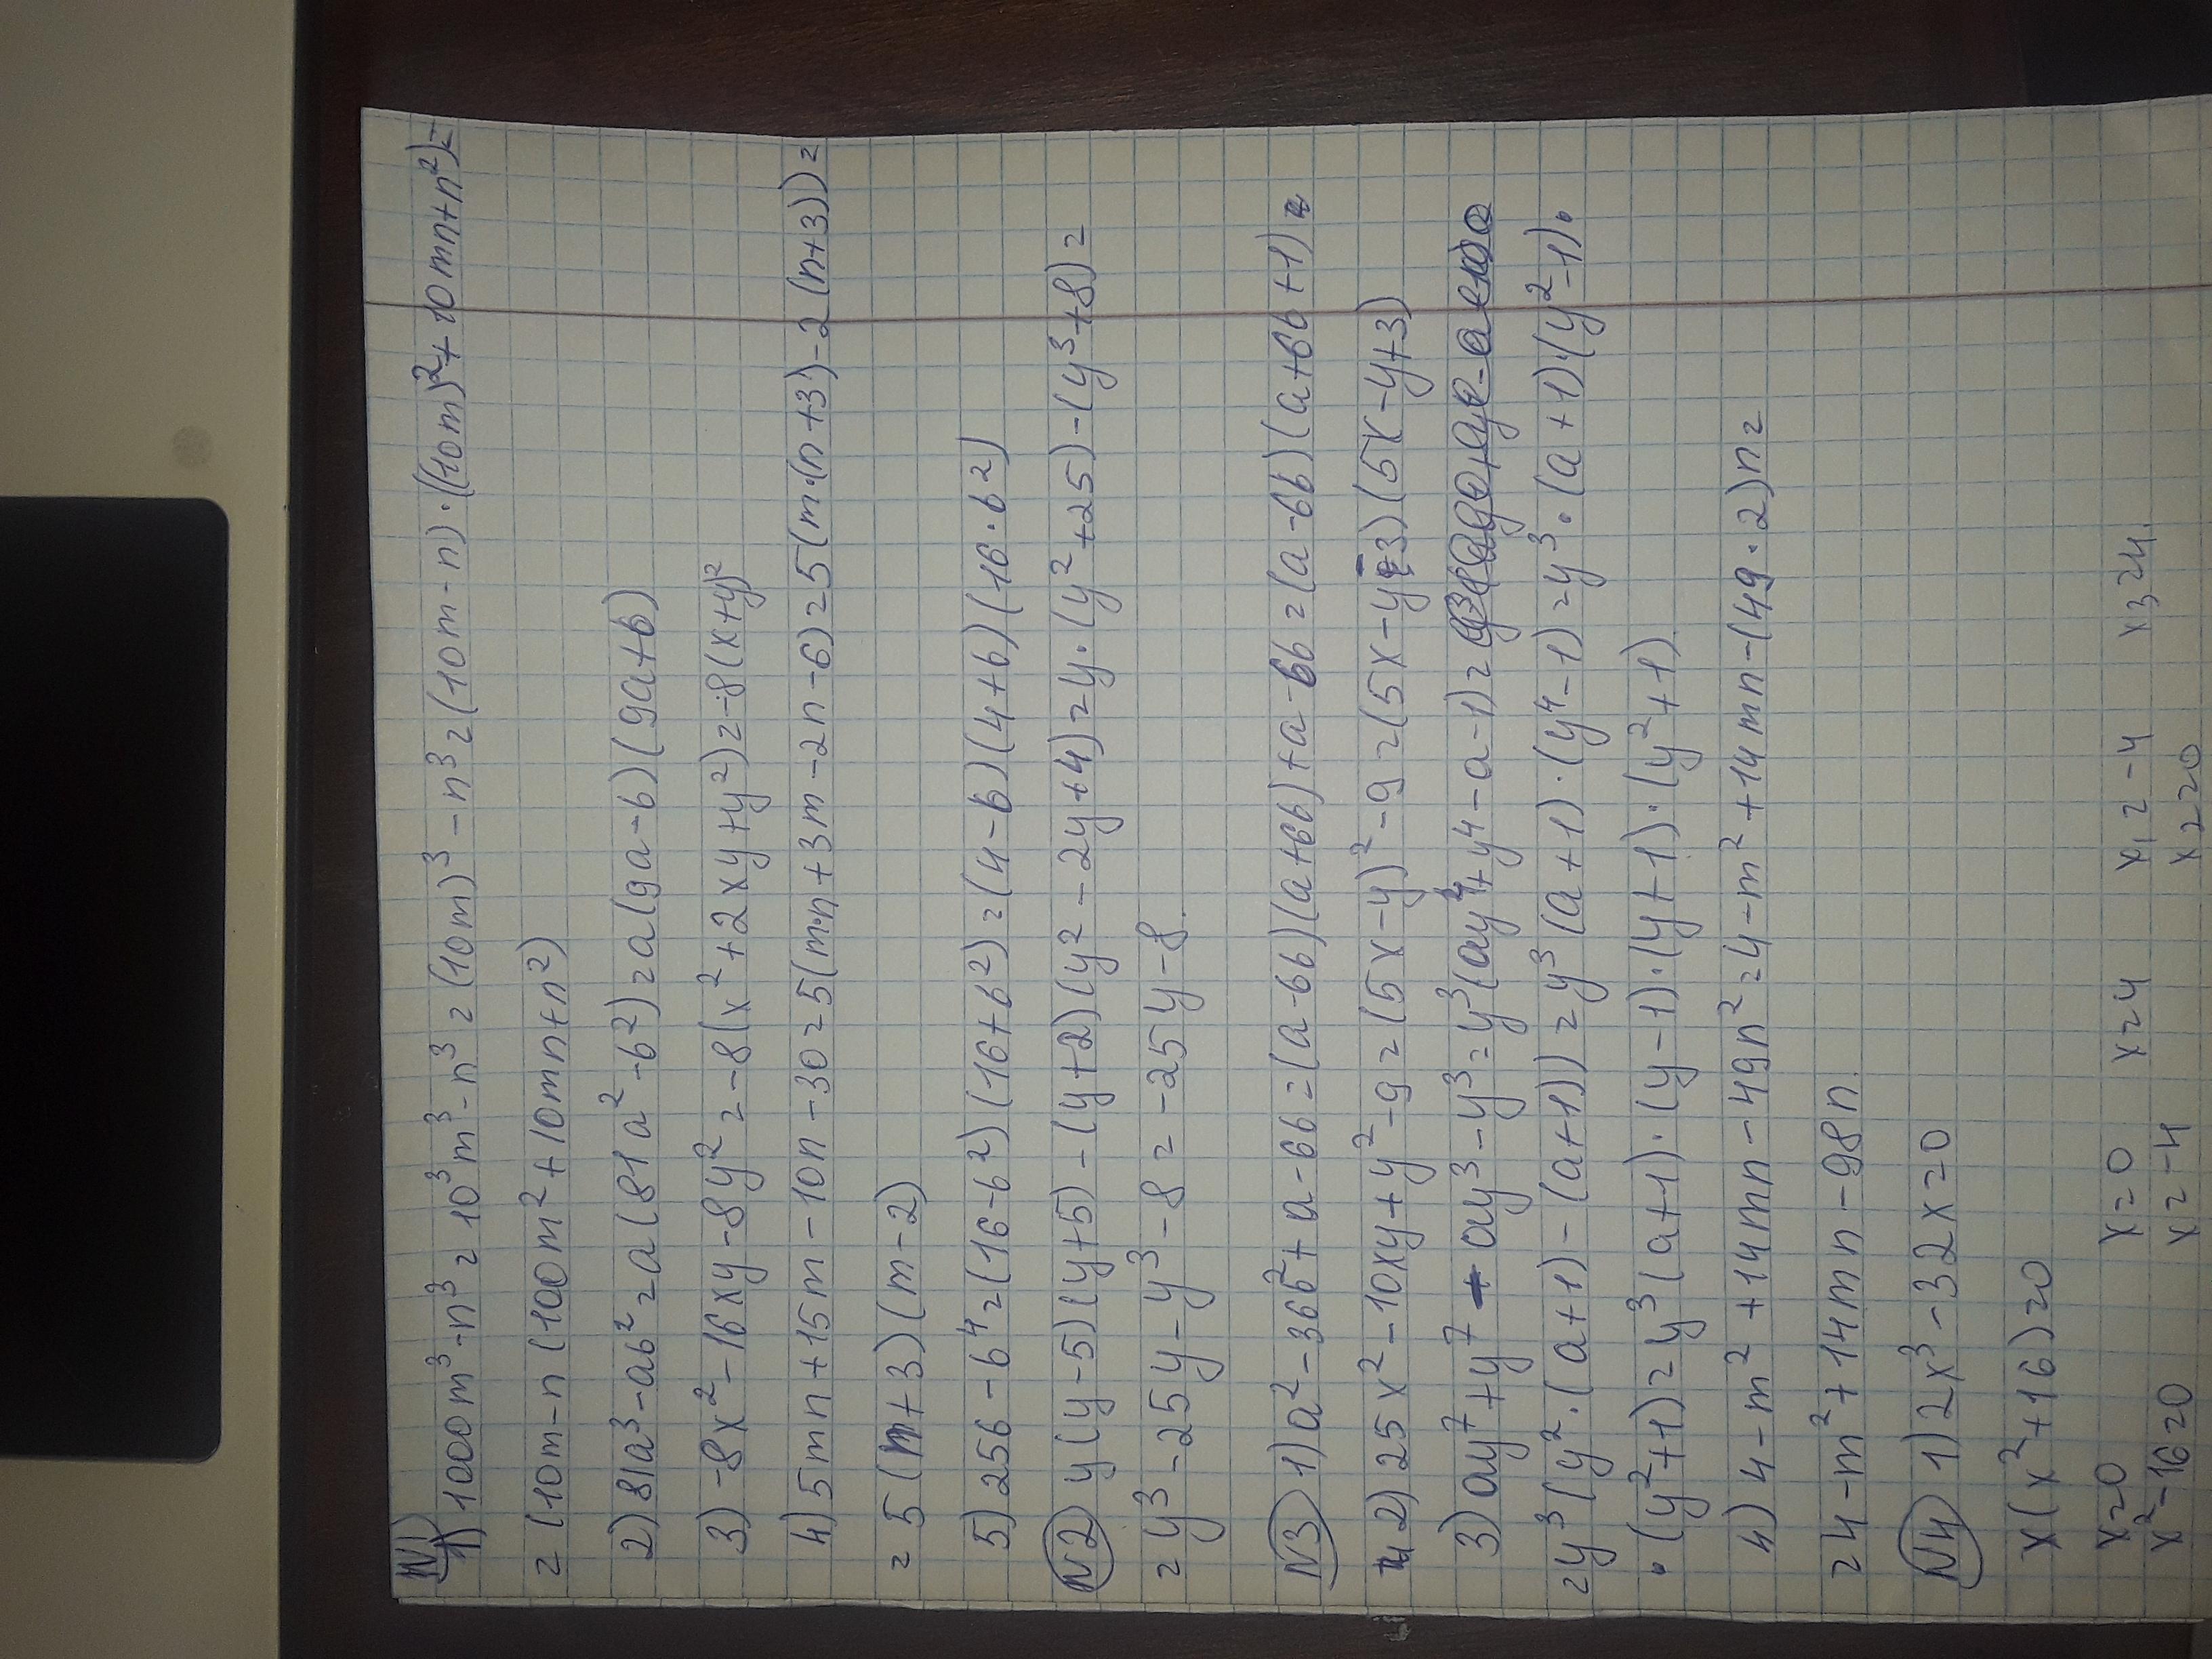 N1
1) 1000m³-n³=10³m³-n³=(10m)³-n³=(10m-n)·((10m)²+10mn+n²)=
=(10m-n(100m²+10mn+n²)
2) 81a³-ab²=a(81a²-b²)=a(9a-b)(9a+b)
3) -8x²-16xy-8y²=-8(x²+2xy+y²)=-8(x+y)²
4) 5mn+15m-10n-30=5(m·n+3m-2n-6)=5(m·(n+3)-2(n+3))=
=5(m+3)(m-2)
5) 256-b⁴=(16-b²)(16+b²)=(4-b)(4+b)(16·b²)
N2 y(y-5)(y+5)-(y+2)(y²-2y+4)=y·(y²+25)-(y³+8)=
=y³-25y-y³-8=-25y-8.
N3 1) a²-36b²+a-6b=(a-6b)(a+6b)+a-6b=(a-6b)(a+6b+1)
2) 25x²-10xy+y²-9=(5x-y)²-9=(5x-y-3)(5x-y+3)
3) ay⁷+y⁷-ay³-y³=y³(ay⁴+y⁴-a-1)=
=y³(y²·(a+1)-(a+1))=y³(a+1)·(y⁴-1)=y³·(a+1)·(y²-1)·
·(y²+1)=y³(a+1)·(y-1)·(y+1)·(y²+1)
4) 4-m²+14mn-49n²=4-m²+14mn-(49·2)n=
=4-m²+14mn-98n.
N4 1) 2x³-32x=0
x(x²+16)=0
x=0 x=0 x=4 x₁=-4 x3=4.
x²-16=0 x=-4 x2=0